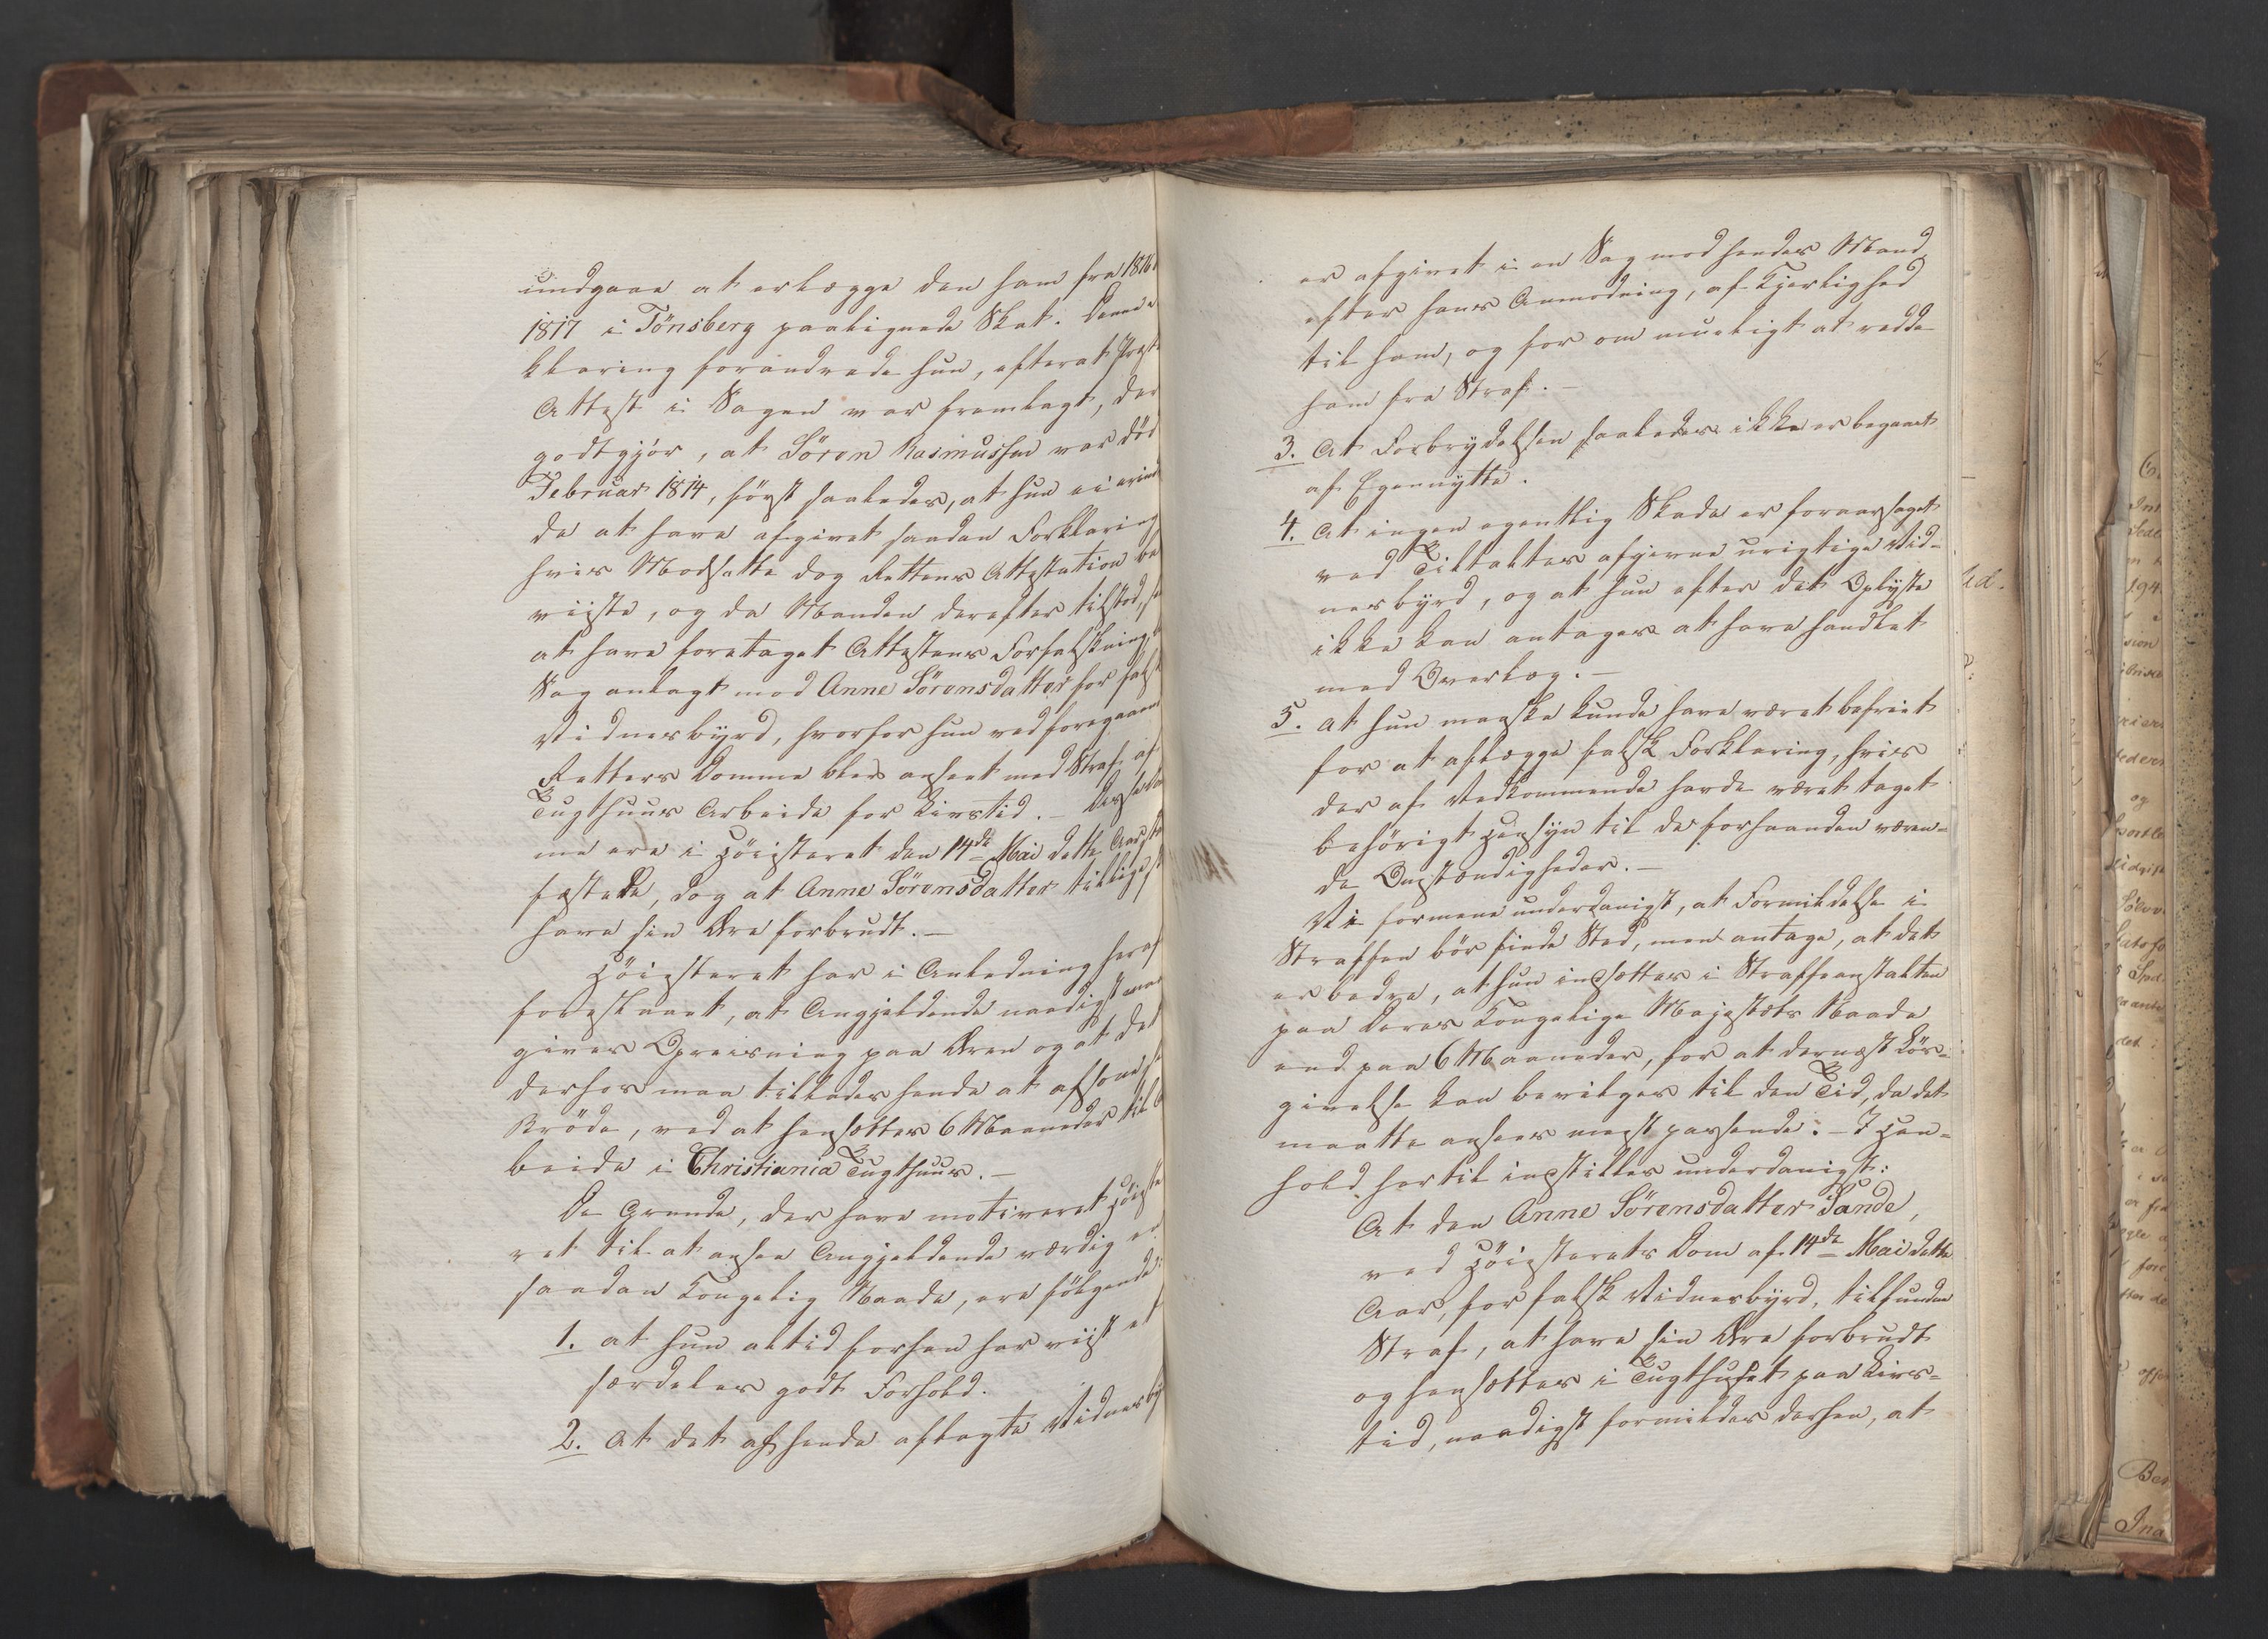 undgaae at erlægge den ham fra 1816
1817 i Tönsberg paalignede Skat. Denne
klaring forandrede hun, efterat Præst
Attest i Sagen var fremlagt, der
godtgjör, at Sören Rasmussen var död
Februar 1814, först saaledes, at hun ei erind
de at have afgivet saadan Forklaring
hvis Modsatte dog Rettens Attestation be
viiste, og da Manden derefter tilstod,
at have foretaget Attestens Forfalskning,
Sag anlagt mod Anne Sörensdatter for falsk
Vidnesbyrd, hvorfor hun ved foregaaen
Retters Domme blev anseet med Straf af
Tugthuus Arbeide for Livstid. – Disse Dom
me ere i Höiesteret den 14de Mai dette Aar
fæstede, dog at Anne Sörensdatter tillige
have sin Ære forbrudt. –
Höiesteret har i Anledning heraf
foreslaaet, at Angjeldende naadigst
gives Opreisning paa Æren og at det
derhos maa tillades hende at afsone
Bröde, ved at hensættes 6 Maaneder til
beide i Christiania Tugthuus. –
De Grunde, der have motiveret Höieste
ret til at ansee Angjeldende værdig
saadan Kongelig Naade, ere fölgende:
1. at hun altid forhen har viist et
særdeles godt Forhold.
2. At det af hende aflagte Vidnesby
er afgivet i en Sag mod hendes Mand
efter hans Anmodning, af Kjerlighed
til ham, og for om mueligt at redde
ham fra Straf. –
3. At Forbrydelsen saaledes ikke er begaaet
af Egennytte.
4. At ingen egentlig Skade er foraarsaget
ved Tiltaltes afgivne urigtige Vid-
nesbyrd, og at hun efter det Oplyste
ikke kan antages at have handlet
med Overlæg. –
5. at hun maaske kunde have været befriet
for at aflægge falsk Forklaring, hvis
der af Vedkommende havde været taget
behörigt Hensyn til de forhaanden væren-
de Omstændigheder. –
Vi formene underdanigst, at Formildelse i
Straffen bör finde Sted, men antage, at det
er bedre, at hun indsættes i Straffeanstalten
paa Deres Kongelige Majestæts Naade
end paa 6 Maaneder, for at dernæst Lös-
givelse kan bevilges til den Tid, da det
maatte ansees meest passende. – I Hen-
hold hertil indstilles underdanigst:
At den Anne Sörensdatter Sande,
ved Höiesterets Dom af 14de Mai dette
Aar, for falsk Vidnesbyrd, tilfundne
Straf, at have sin Ære forbrudt
og hensættes i Tugthuset paa Livs-
tid, naadigst formildes derhen, at